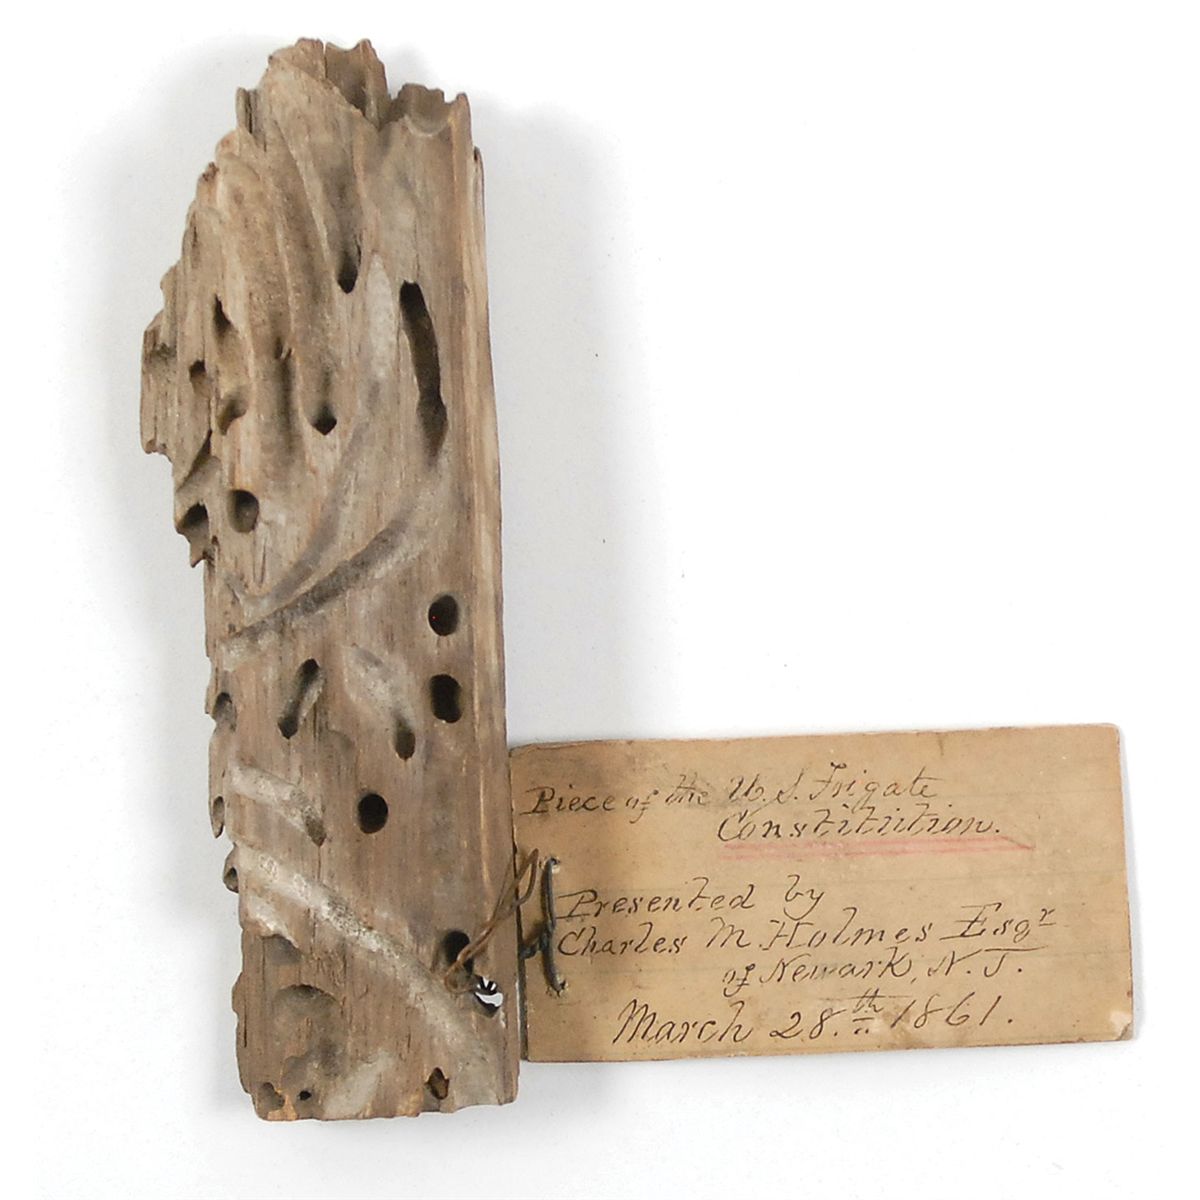 Piece of the U. S. Frigate
Constitution.
Presented by
Charles M. Holmes Esqr
of Newark, N. J.
March 28.th 1861.